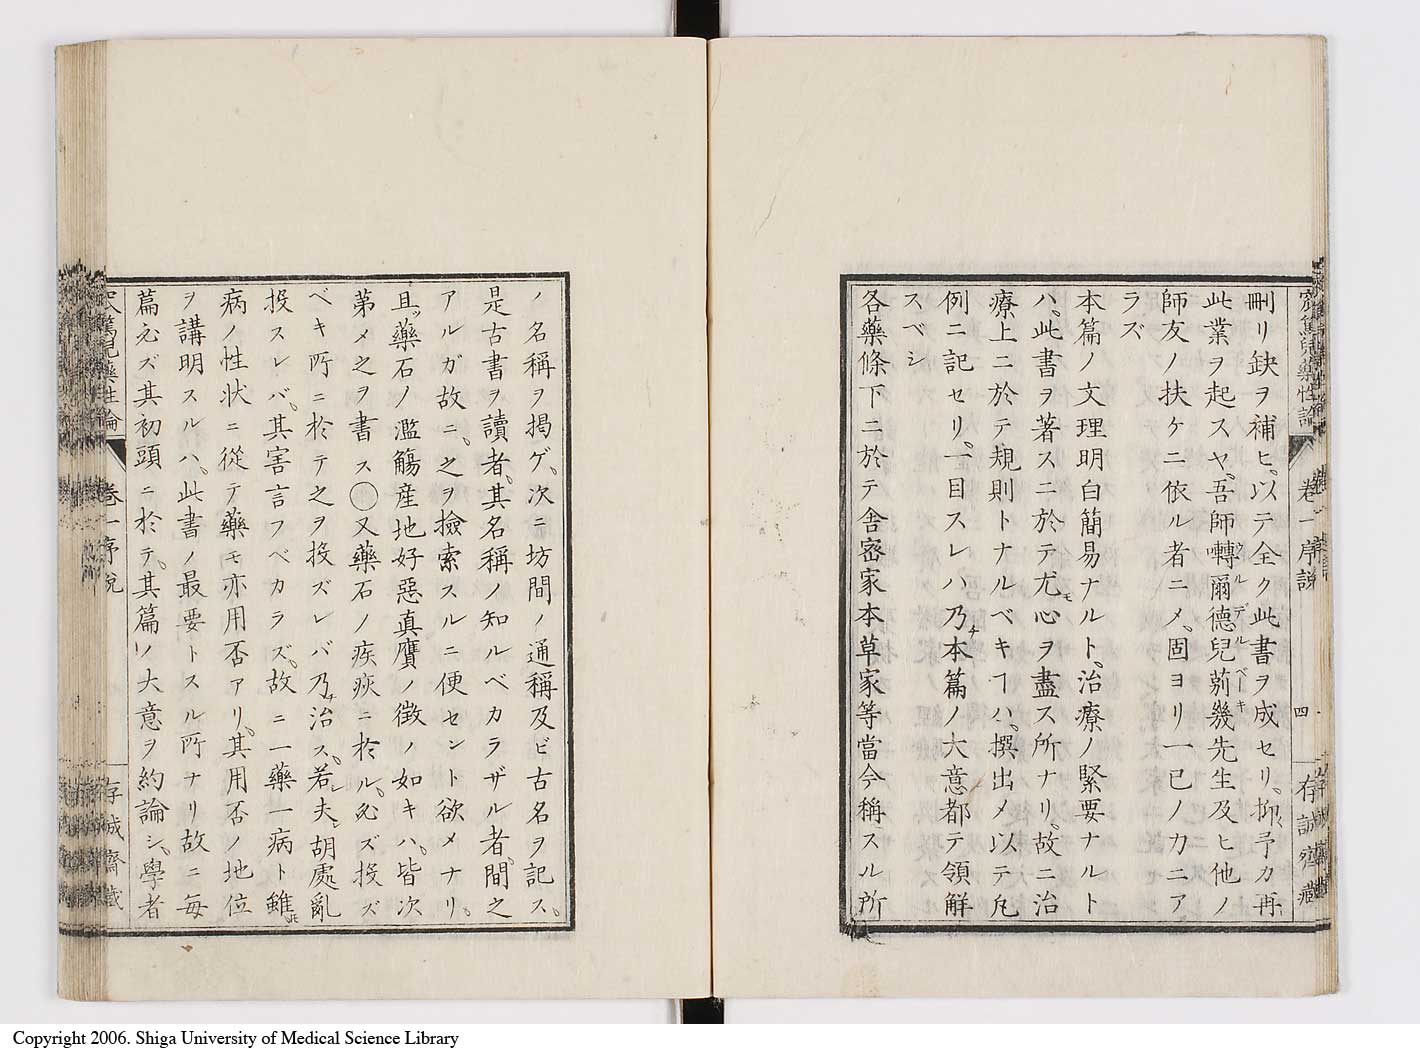 刪リ缺ヲ補ヒ、以テ全ク此書ヲ成セリ、抑予カ再
此業ヲ起スヤ、吾師囀爾德兒菊幾先生及ヒ他ノ
師友ノ扶ケニ依ル者ニメ、固ヨリ一己ノ力ニア
ラズ
本篇ノ文理明白簡易ナルト、治療ノ緊要ナルト
ハ、此書ヲ著スニ於テ尤心ヲ盡ス所ナリ、故ニ治
療上ニ於テ規則トナルベキヿハ、撰出メ以テ凡
例ニ記セリ、一目スレハ乃本篇ノ大意都テ領解
スベシ
各藥條下ニ於テ舎密家本草家等當今稱スル所
ノ名稱ヲ掲ゲ、次ニ坊間ノ通稱及ビ古名ヲ記ス、
是古書ヲ讀者、其名稱ノ知ルベカラザル者、間之
アルガ故ニ、之ヲ撿索スルニ便セント欲メナリ、
且藥石ノ濫觴産地好惡真贋ノ徴ノ如キハ、皆次
第メ之ヲ書ス〇又藥石ノ疾病ニ於ル、必ズ投ズ
ベキ所ニ於テ之ヲ投ズレバ乃治ス、若夫胡處亂
投スレバ、其害言フベカラズ、故ニ一藥一病ト雖
病ノ性状ニ從テ藥モ亦用否アリ、其用否ノ地位
ヲ講明スルハ、此書ノ最要トスル所ナリ故ニ毎
篇必ズ其初頭ニ於テ、其篇ノ大意ヲ約論シ、學者
卷一序説
四
存誠齋藏